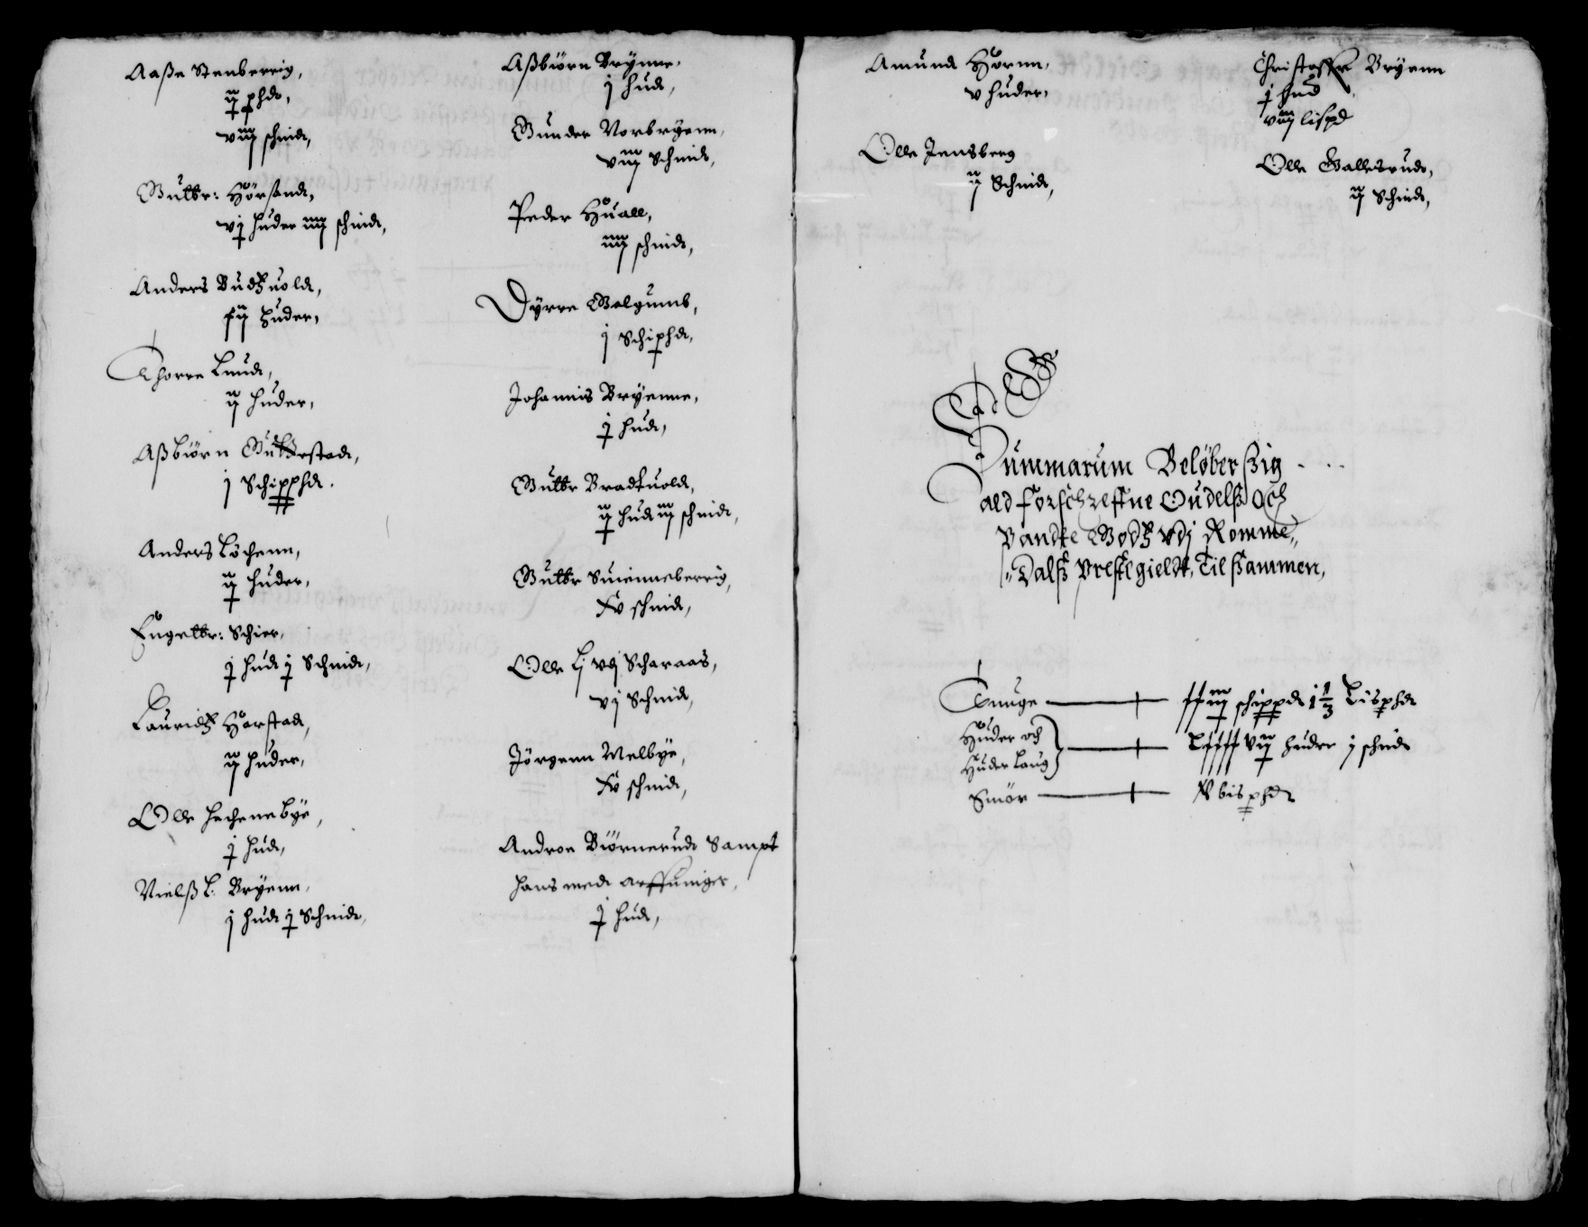 Aaße Stenberrig,
ij phd,
viij schind,
Guttor: Hörsand,
vj huder iiij schind,
Anders Rudzuold,
xij Huder,
Thorre Lund,
ij huder,
Aßbiörn Gutterstad,
j Schipphd.
Anders Löchenn,
ij huder,
Engeltr: Schier,
j hud j Schind,
Lauridz Horstad,
ij huder,
Olle Hachenebye,
j hud,
Nielß L. Bryenn,
j hud j Schind,
Aßbiörn Brynne,
j hud,
Gunder Norbryenn,
viij Schind,
Peder Huall,
iiij schind,
Dyrre Gölgumb,
j Schiphd,
Johannis Bryenne,
j hud,
Guttor Bradtuold,
ij hud iij schind,
Guttor Suenneberrig,
xv schind,
Olle Lj vdj Scharaas,
vj Schind,
Jörgenn Melbye,
xv schind,
Androe Biörnerud Sampt
hans med arffuinger,
j hud,
Amund Hörnn,
v huder,
Olle Jensberg
ij Schind,
Christoffer Bryenn
j hud
viij lispd
Olle Gallesrud,
ij Schind,
Summarum Beløber ßig
ald forschreffne Oudelß Och
Pandte Godz vdj Romme,,
,,Dalß Prestegieldt, Tilßammen,
Tunge — xxiiij schippd 1 1/3 Lisphd
Huder och
Huder laug — Lxxxx vij huder j schind
Smör — xv bisphd